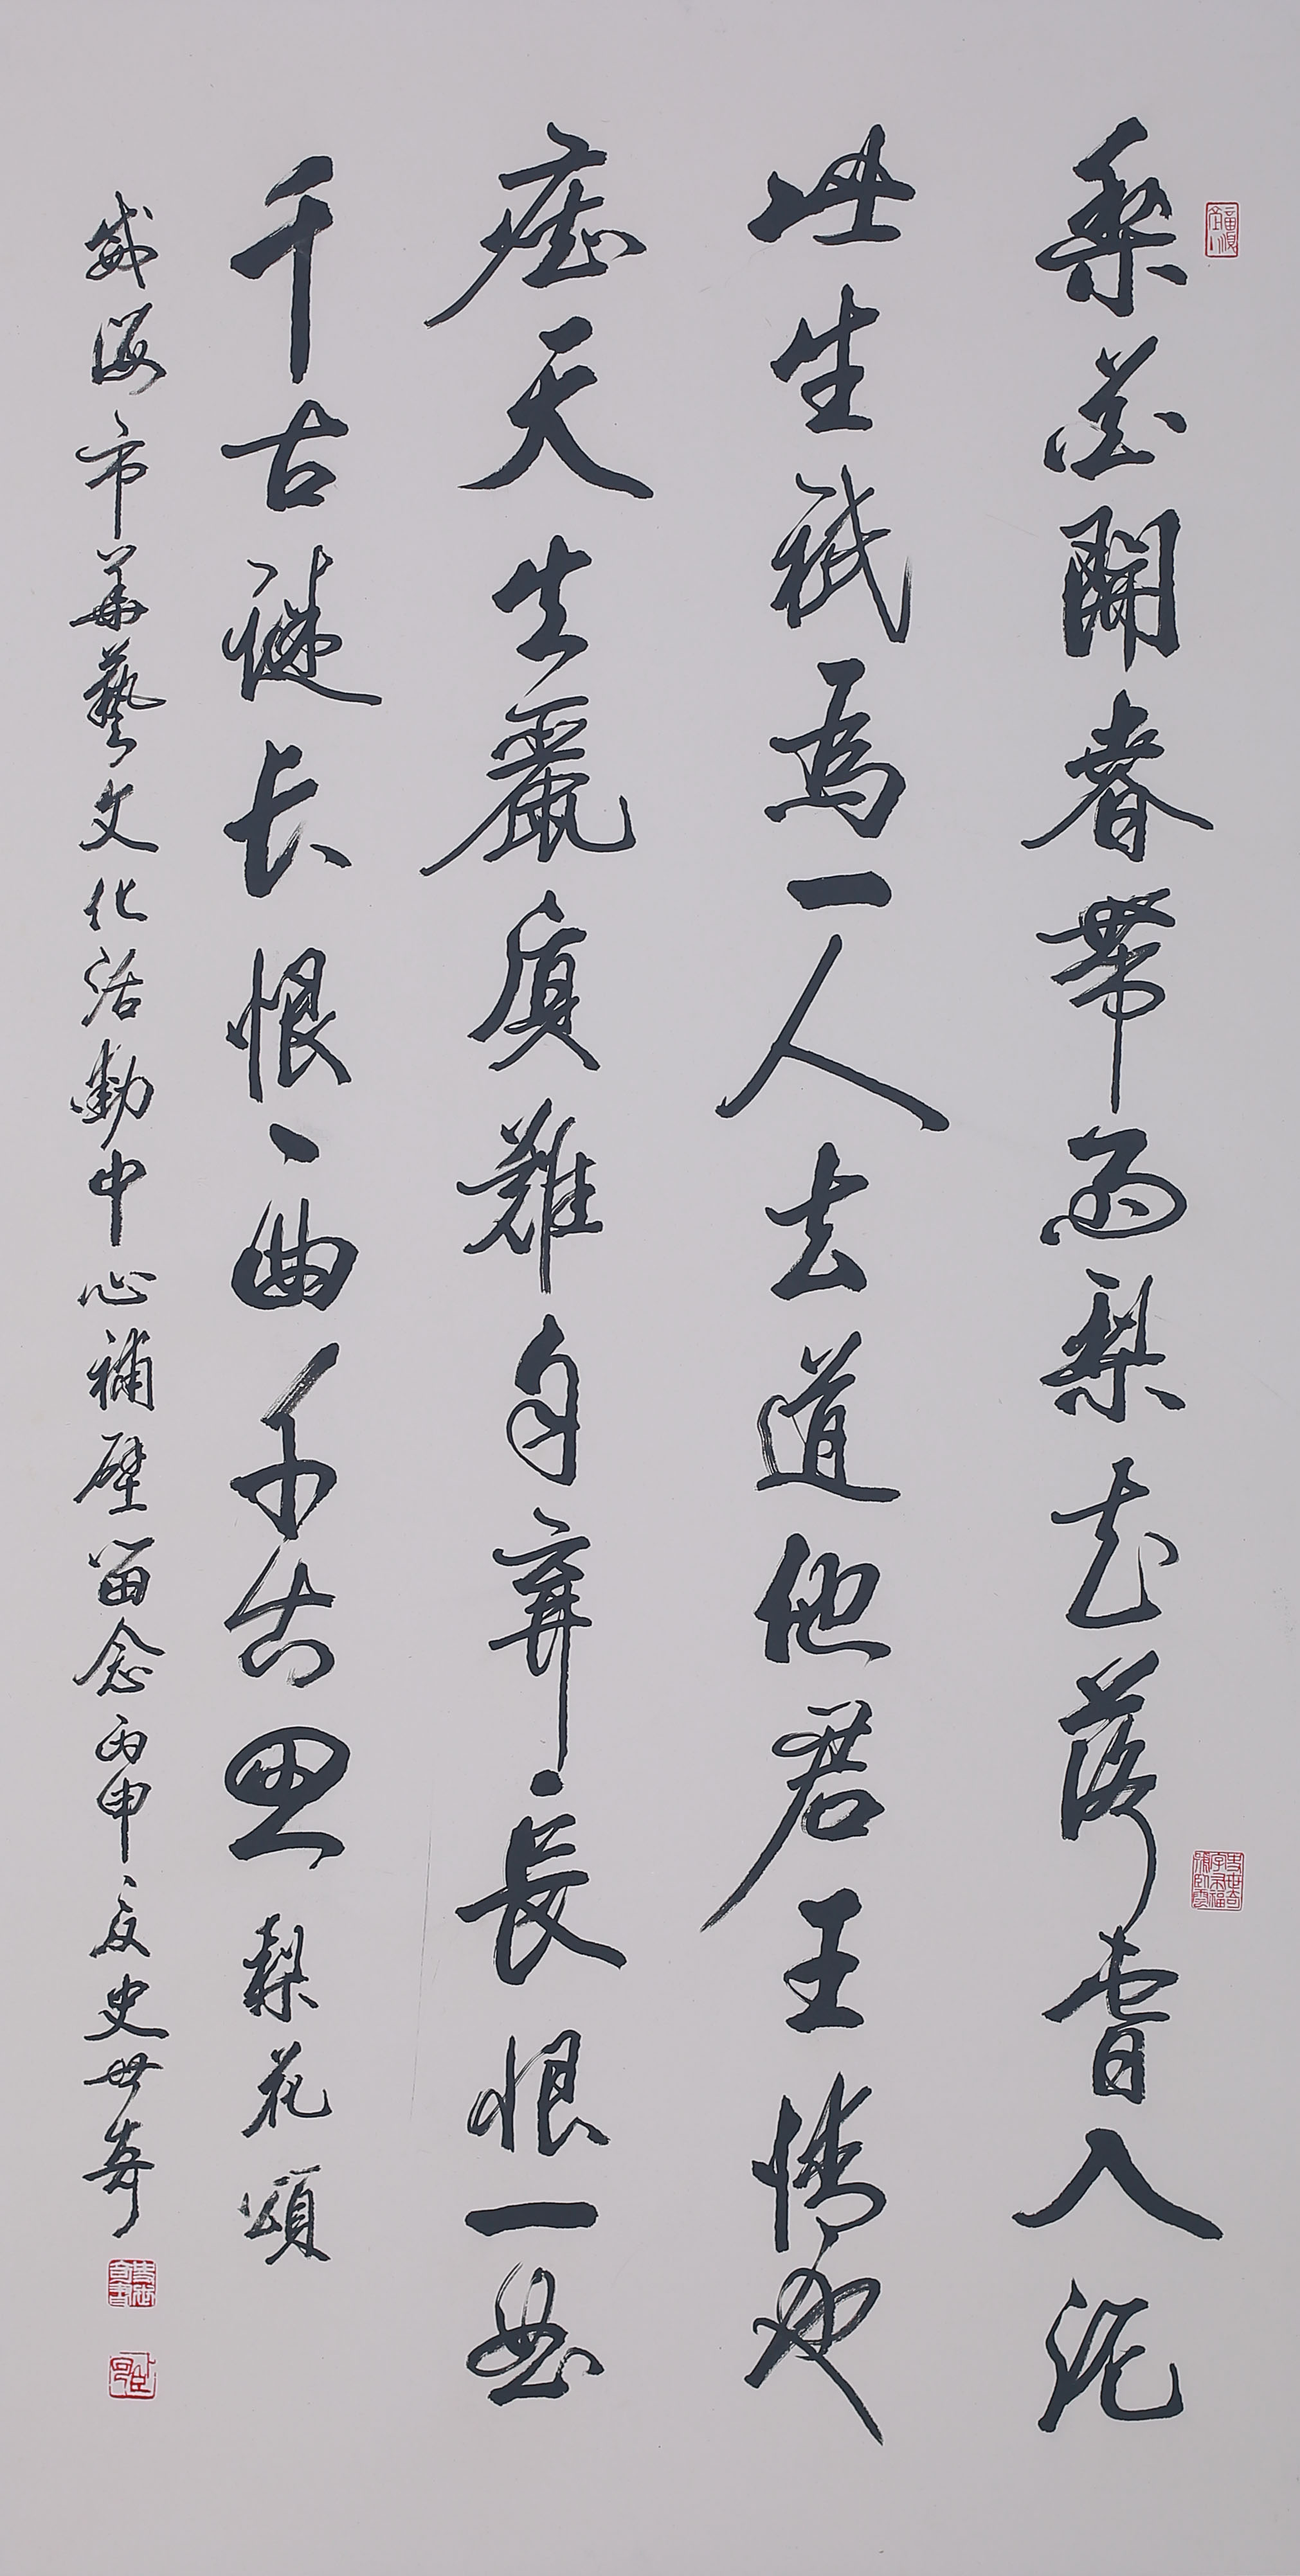 梨花開春帶雨梨花落春入泥
此生祇為一人去道他君王情也
痴天生麗質難自棄長恨一曲
千古謎长恨一曲千古思梨花頌
威海市華藝文化活動中心補壁留念丙申夏史世奇